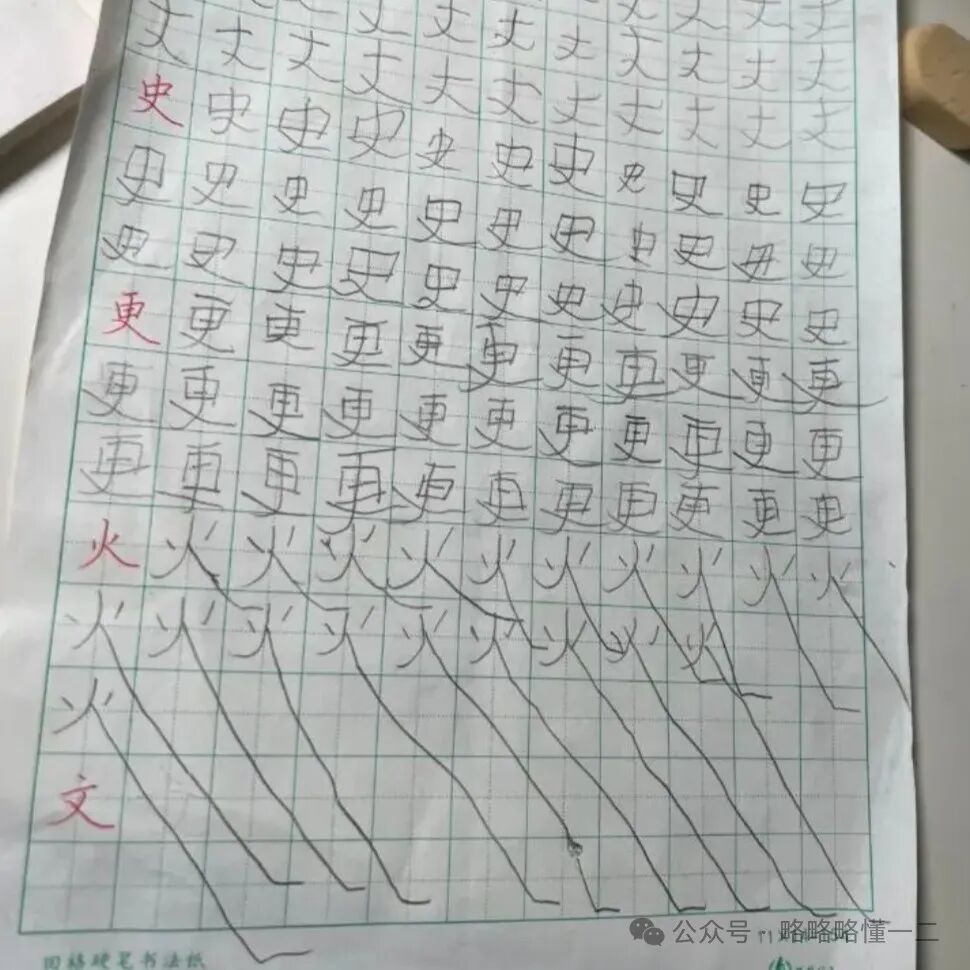 丈丈丈丈
丈丈丈丈丈丈丈丈
丈丈丈丈丈丈丈丈丈丈丈
史史史史史史史史史史史
史史史史史史史史史史史
史史史史史史史史史史史
更更更更更更更更更更更
更更更更更更更更更更更
更更更更更更更更更更更
火火火火火火火火火火火
火火火火火火火火火
火
文
格硬笔书法纸
公众号 · 略略略懂一二